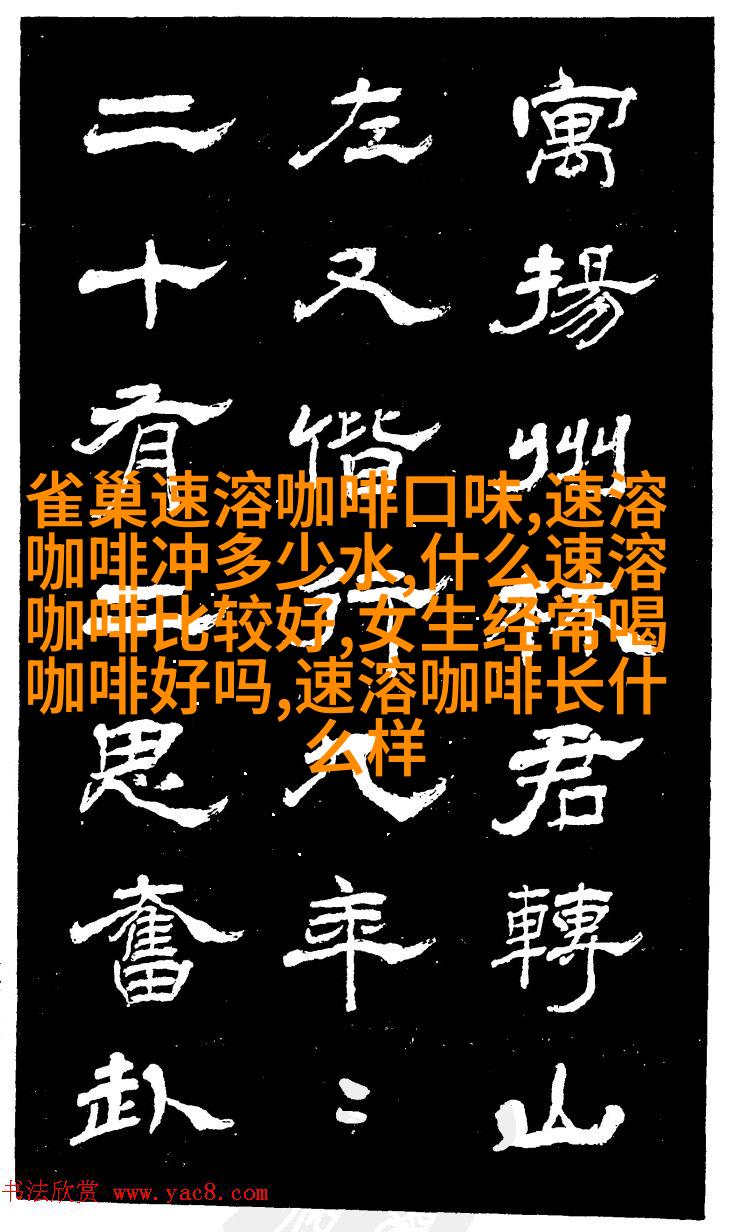 寓揚州君轉山
左又偕行年〻
二十有思奮赴
雀巢速溶咖啡口味,速溶
咖啡冲多少水,什么速溶
咖啡比较好,女生经常喝
咖啡好吗,速溶咖啡长什
么样
书法欣赏 www.yac8.com